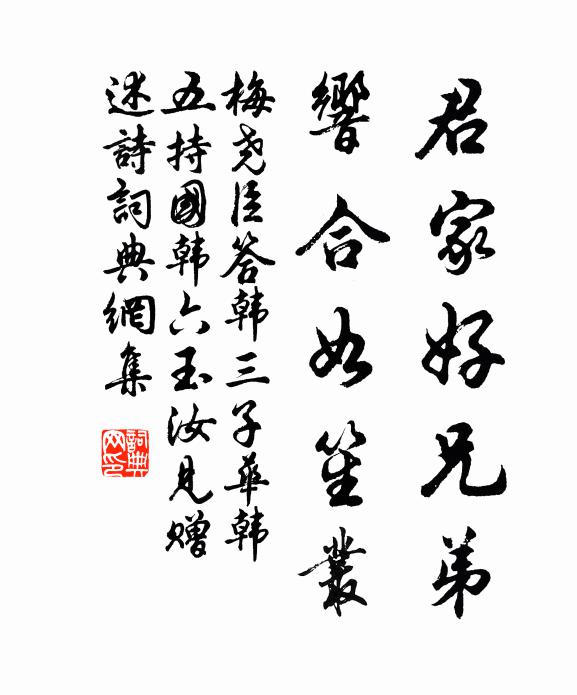 君家好兄弟
響合如笙叢
梅堯臣答韩三子華韩
五持國韩六玉汝見贈
述詩詞典網集
詞典网印